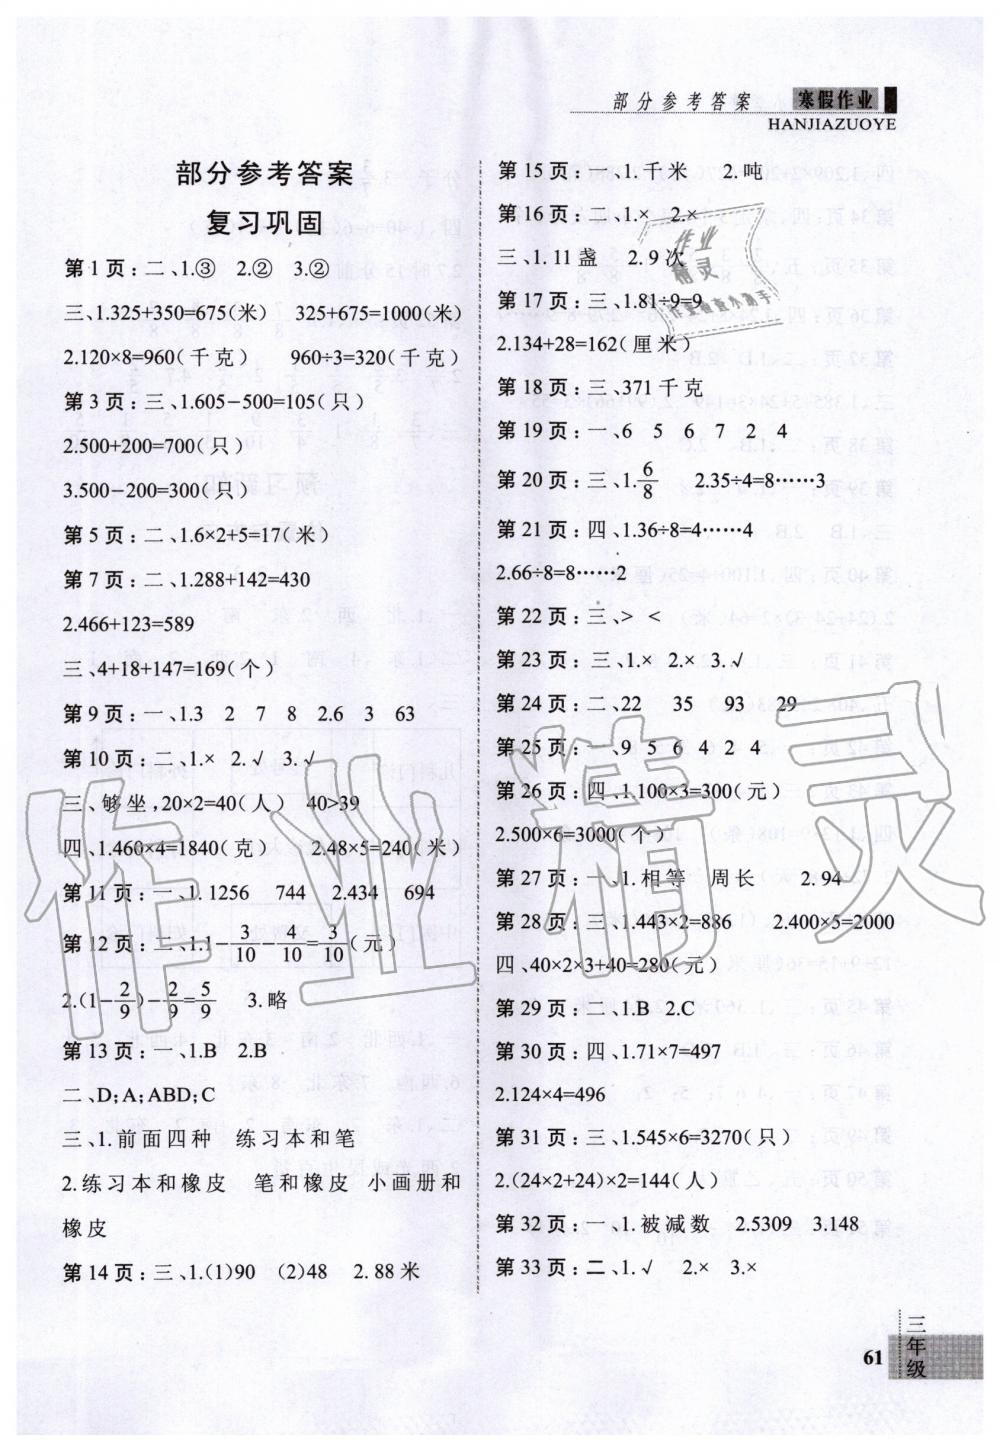 部分参考答案 寒假作业
HANJIAZUOYE
部分参考答案
复习巩固
第1页:二、1.③ 2.② 3.②
三、1.325+350=675(米) 325+675=1000(米)
2.120×8=960(千克) 960÷3=320(千克)
第3页:三、1.605-500=105(只)
2.500+200=700(只)
3.500-200=300(只)
第5页:二、1.6×2+5=17(米)
第7页:二、1.288+142=430
2.466+123=589
三、4+18+147=169(个)
第9页:一、1.3 2 7 8 2.6 3 63
第10页:二、1.× 2.√ 3.√
三、够坐,20×2=40(人) 40>39
四、1.460×4=1840(克) 2.48×5=240(米)
第11页:一、1.1256 744 2.434 694
第12页:二、1.1-3/10-4/10=3/10(元)
2.(1-2/9)-2/9=5/9 3.略
第13页:一、1.B 2.B
二、D;A;ABD;C
三、1.前面四种 练习本和笔
2.练习本和橡皮 笔和橡皮 小画册和
橡皮
第14页:三、1.(1)90 (2)48 2.88米
第15页:一、1.千米 2.吨
第16页:二、1.× 2.×
三、1.11盏 2.9次
第17页:三、1.81÷9=9
2.134+28=162(厘米)
第18页:三、371千克
第19页:一、6 5 6 7 2 4
第20页:三、1.6/8 2.35÷4=8……3
第21页:四、1.36÷8=4……4
2.66÷8=8……2
第22页:三、> <
第23页:三、1.× 2.× 3.√
第24页:二、22 35 93 29
第25页:一、9 5 6 4 2 4
第26页:四、1.100×3=300(元)
2.500×6=3000(个)
第27页:一、1.相等 周长 2.94
第28页:三、1.443×2=886 2.400×5=2000
四、40×2×3+40=280(元)
第29页:二、1.B 2.C
第30页:四、1.71×7=497
2.124×4=496
第31页:三、1.545×6=3270(只)
2.(24×2+24)×2=144(人)
第32页:一、1.被减数 2.5309 3.148
第33页:二、1.√ 2.× 3.×
作业
精灵
作业精灵
三年级
61